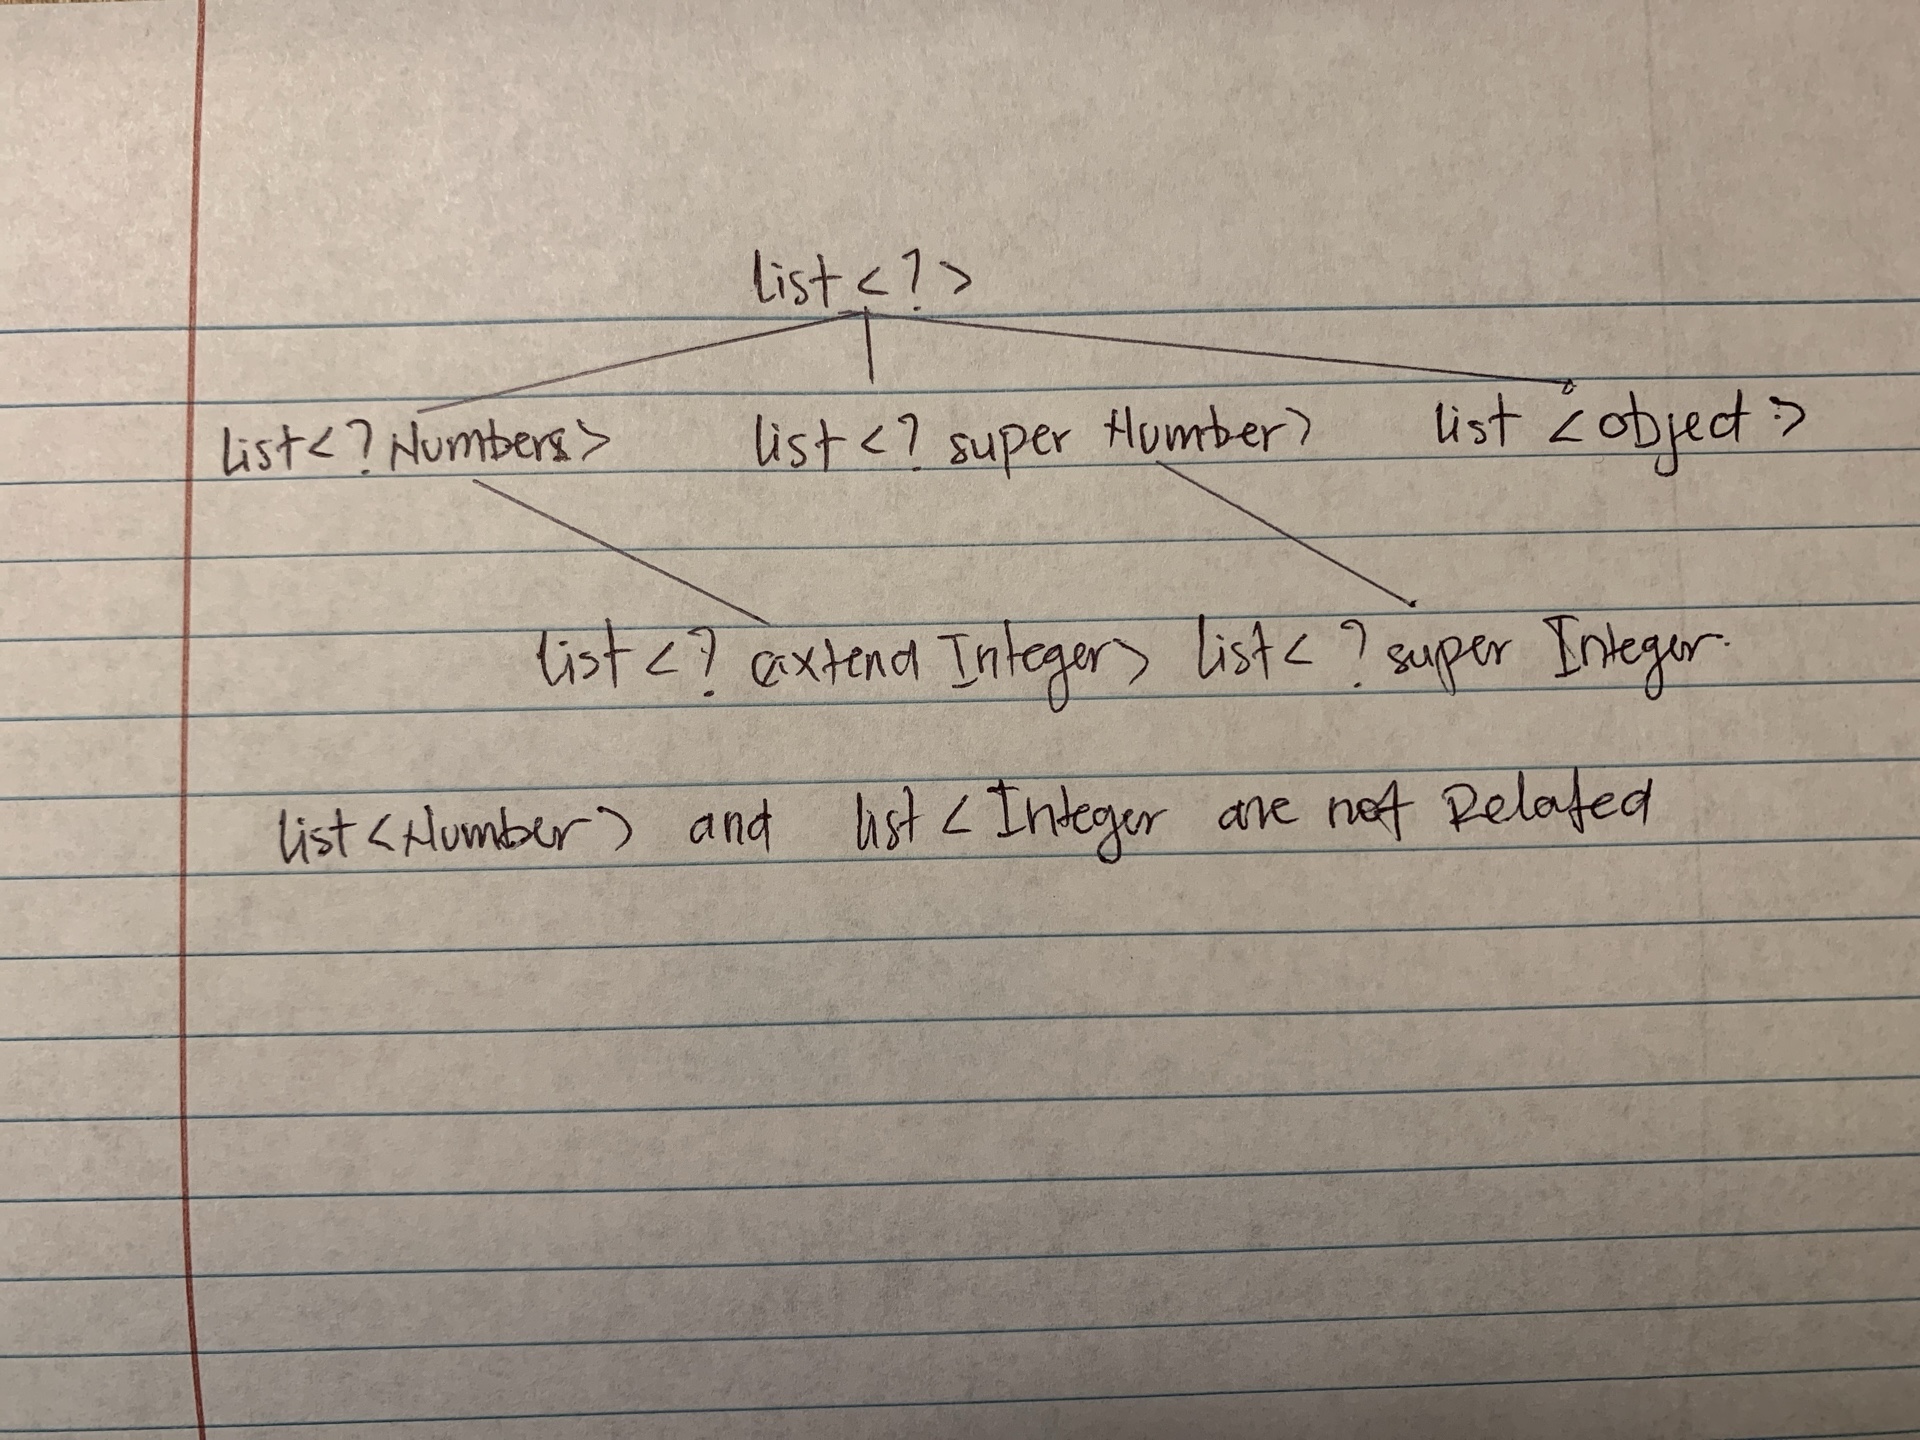 list <?>
list <? Numbers> list <? super Number> list <object>
list <? extend Integer> list < ? super Integer.
list <Number> and list < Integer are not Related